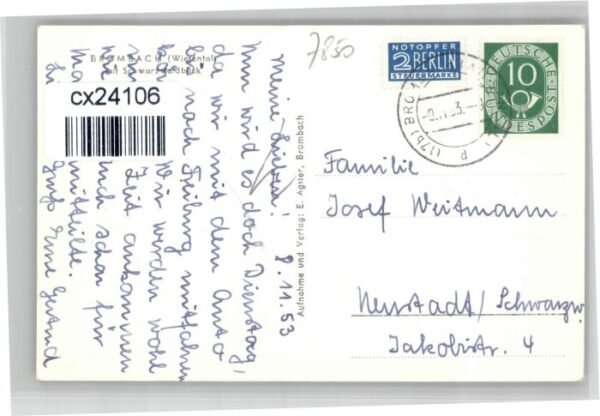 7850
BROMBACH (Wiesental)
mit Schwarzwaldblick
cx24106
8.11.53
Meine Lieben!
Nun wird es doch Dienstag,
da wir mit dem Auto
bis nach Freiburg mitfahren
Wir werden wohl
Zeit ankommen
auch schon für
mitteilte.
Gruß Eure Gertrud
Aufnahme und Verlag: E. Agster, Brombach
NOTOPFER
2 BERLIN
STEUERMARKE
DEUTSCHE BUNDESPOST
10
(17b) BROMBACH
-9.11.53.
d
Familie
Josef Weitmann
Neustadt/Schwarzw
Jakobistr. 4